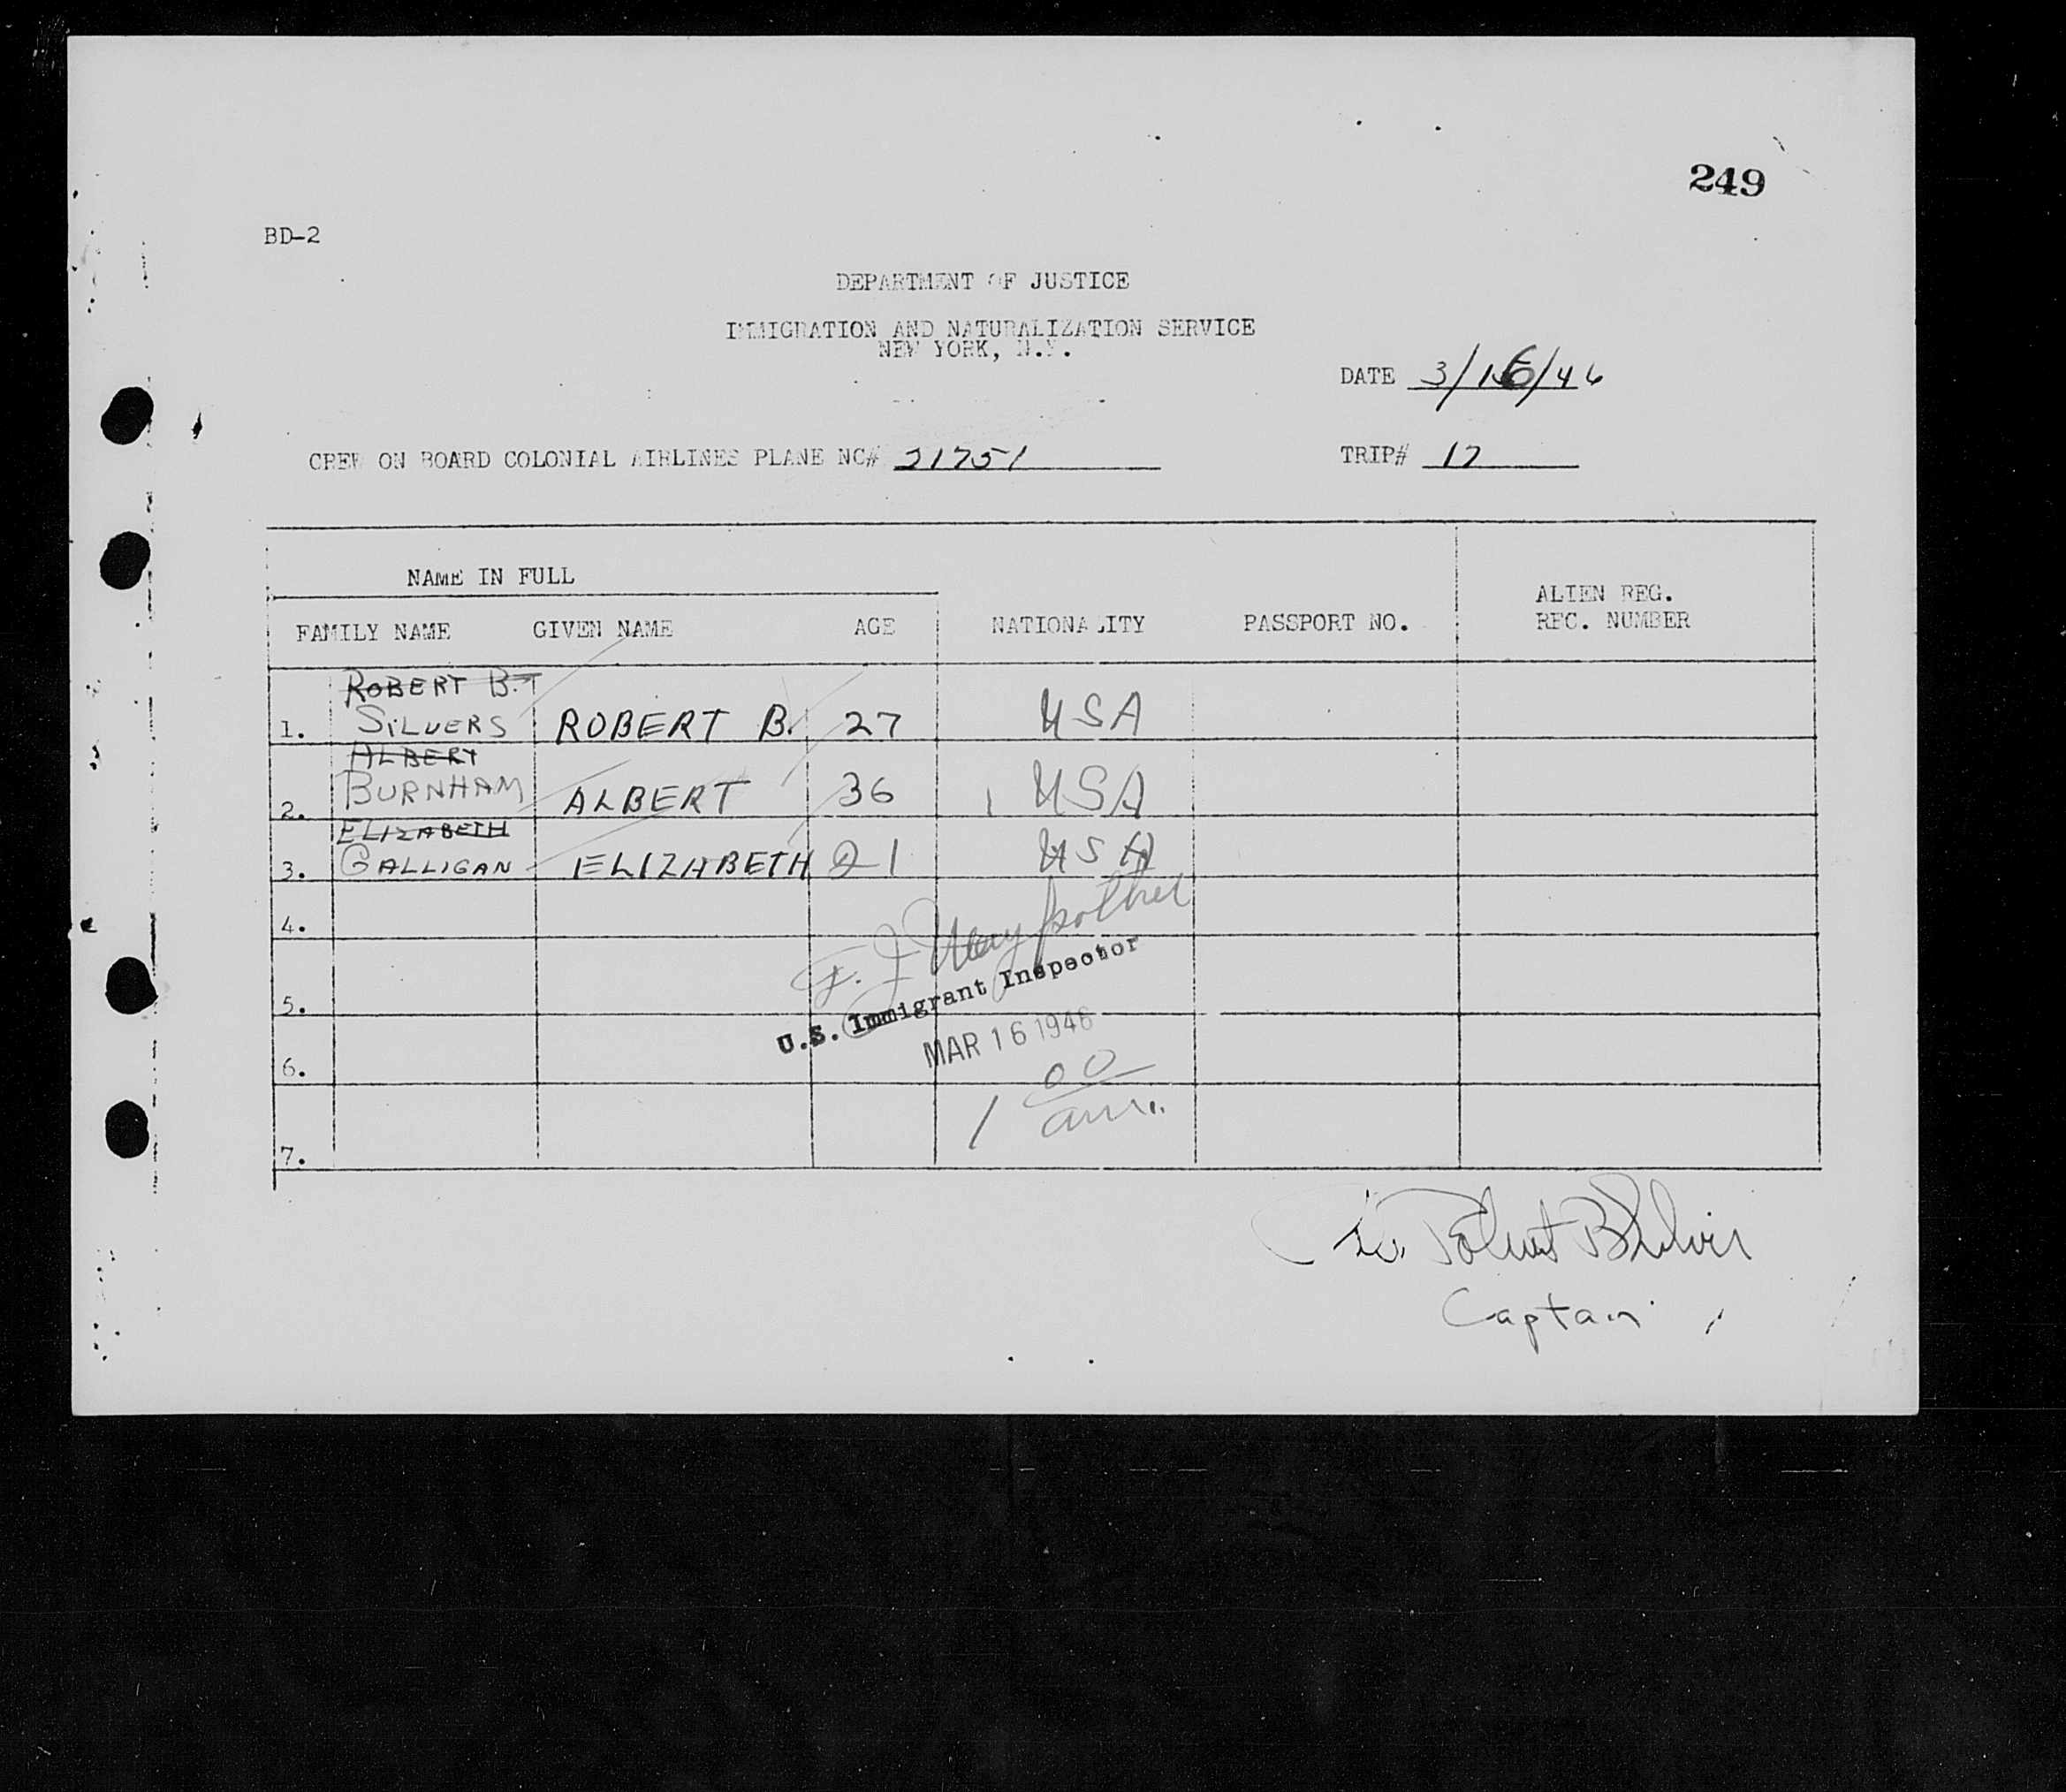 249
BD-2
DEPARTMENT OF JUSTICE
IMMIGRATION AND NATURALIZATION SERVICE
NEW YORK, N.Y.
DATE 3/16/46
CREW ON BOARD COLONIAL AIRLINES PLANE NC# 21751
TRIP# 17
NAME IN FULL
FAMILY NAME GIVEN NAME AGE NATIONALITY PASSPORT NO. ALIEN REG. REC. NUMBER
ROBERT B.
1. SILVERS ROBERT B. 27 USA
ALBERT
2. BURNHAM ALBERT 36 USA
ELIZABETH
3. GALLIGAN ELIZABETH 21 USA
4.
F. J.
U.S. Immigrant Inspector
5.
MAR 16 1946
6.
1 00 am.
7.
Robert B Silvers
Captain